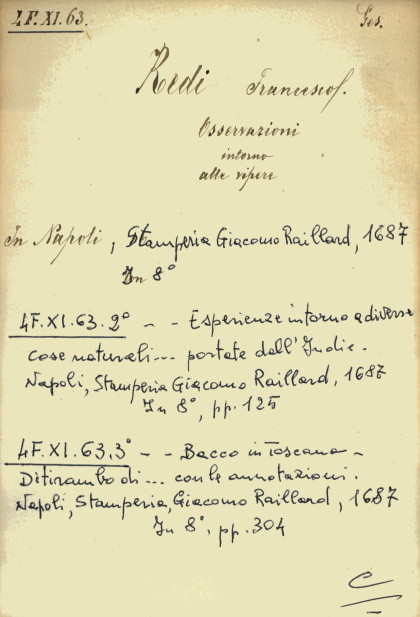 4F.XI.63. Ges.
Redi Francesco.
Osservazioni
intorno
alle vipere
In Napoli, Stamperia Giacomo Raillard, 1687
In 8°
4F.XI.63.2° - - Esperienze intorno a diverse
cose naturali... portate dall'Indie.
Napoli, Stamperia Giacomo Raillard, 1687
In 8°, pp. 125
4F.XI.63.3° - - Bacco in Toscana -
Ditirambo di... con le annotazioni.
Napoli, Stamperia, Giacomo Raillard, 1687
In 8°, pp. 304